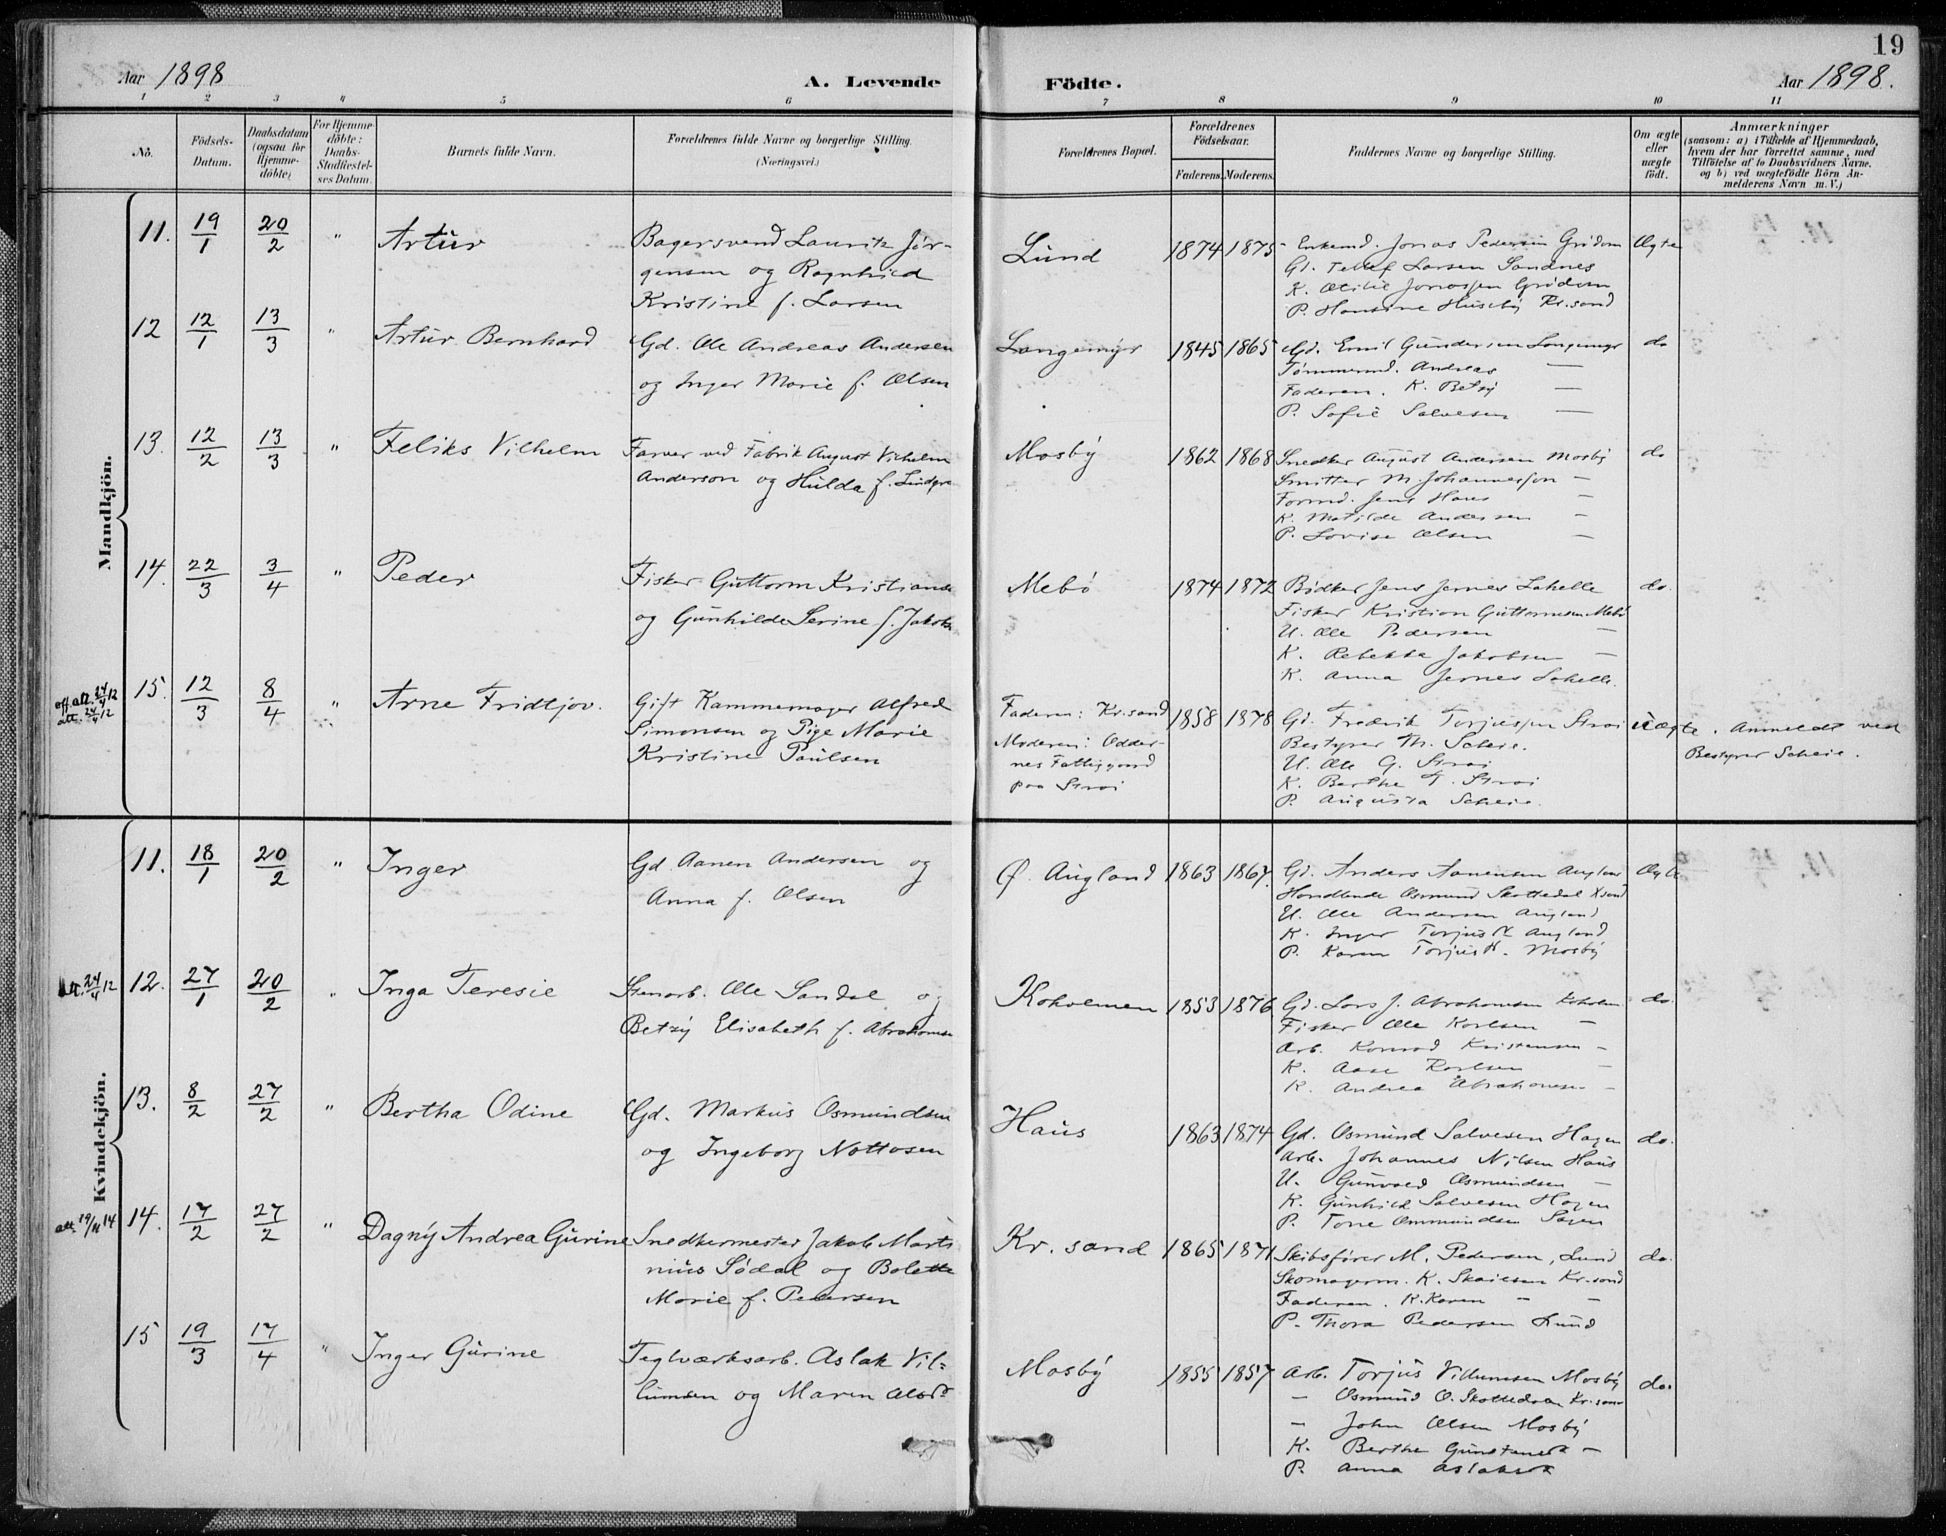 19
Aar 1898
A. Levende
Födte.
Aar 1898.
1 2 3 4 5 6 7 8 9 10 11
No.
Födsels-
Datum.
Daabsdatum
(ogsaa for
Hjemme-
döbte)
For Hjemme-
döbte:
Daabs-
Stadfæstel-
ses Datum.
Barnets fulde Navn.
Forældrenes fulde Navne og borgerlige Stilling.
(Næringsvei.)
Forældrenes Bopæl.
Forældrenes
Födselsaar.
Faderens. Moderens.
Faddernes Navne og borgerlige Stilling.
Om ægte
eller
uægte
födt.
Anmærkninger
(saasom: a) i Tilfælde af Hjemmedaab,
hvem der har forrettet samme, med
Tilföielse af to Daabsvidners Navne,
og b) ved uægtefödte Börn An-
melderens Navn m. V.)
Mandkjön.
11. 19/1 20/2 " Artur
Bagersvend Lauritz Jør-
gensen og Ragnhild
Kristine f. Larsen
Lund 1874 1875
Enkemd. Jonas Pedersen Grödem
Larsen Sandnes
K. Jonassen Grödem
P. Hansine Huseby Kr.sand
Ægte
12 12/1 13/3 " Artur Bernhard
Gd. Ole Andreas Andersen
og Inger Marie f. Olsen
Langemyr 1845 1865
Gd. Emil Gundersen Langemyr
Tømmermd. Andreas —
Faderen. K. Betzy —
P. Sofie Salvesen —
do
13. 12/2 13/3 " Feliks Vilhelm
Farver ved Fabrik August Vilhelm
Anderson og Hulda f.
Mosby 1862 1868
Snedker August Andersen Mosby
M. Johannesson —
Formd. Jens Haus —
K. Matilde Andersen —
P. Lovise Olsen —
do
14. 22/3 3/4 " Peder
Fisker Guttorm
og Gunhilde Serine f.
Mebö 1874 1872
Bödker Jens Jernes
Fisker Kristian Guttormsen Mebö
U. Ole Pedersen —
K. Rebekka Jakobsen —
K. Anna Jernes
do.
15. 12/3 8/4 " Arne Fridtjov.
Gift Kammemager Alfred
Simonsen og Pige Marie
Kristine Paulsen
Faderen: Kr.sand
Moderen: Odder-
nes Fattiggaard
paa Strai
1858 1878
Gd. Fredrik Torjussen Strai
Bestyrer Th. Scheie.
U. Ole G. Strai
K. Berthe T. Strai
P. Augusta Scheie.
uægte. Anmeldt ved
Bestyrer Scheie.
Kvindekjön.
11. 18/1 20/2 " Inger
Gd Aanen Andersen og
Anna f. Olsen
Ø. Augland 1863 1867.
Gd. Anders Aanensen
Handlende Osmund Skottedal
U. Ole Andersen Augland
K. Inger Augland
P. Karen Mosby
12. 27/1 20/2 " Inga Teresie
Stenarb. Ole Sandal og
Betzy Elisabeth f.
1853 1876
Gd. Lars J. Abrahamsen
Fisker Ole Karlsen —
Arb. Konrad Kristensen —
K. Aase Karlsen —
K. Andrea Abrahamsen —
do.
13. 8/2 27/2 " Bertha Odine
Gd. Markus Osmundsen
og Ingeborg
Haus 1863 1874
Gd. Osmund Salvesen Hagen
Arb. Johannes Nilsen Haus
U. Gunvald Osmundsen —
K. Gunhild Salvesen Hagen
P. Tone
do.
14. 17/2 27/2 " Dagny Andrea Gurine
Snedkermester Jakob Marti-
nius Södal og Bolette
Marie f. Pedersen
Kr. sand 1865 1871
Skibsförer M. Pedersen, Lund
Skomagerm. K. Kr.sand
Faderen. K. Karen — —
P. Thora Pedersen Lund
do.
15 19/3 17/4 " Inger Gurine
Teglværksarb. Aslak Vil-
lumsen og Maren
Mosby 1855 1857
Arb. Torjus Villumsen Mosby
— Osmund O.
— John Olsen Mosby
K. Berthe —
P. Anna
do.